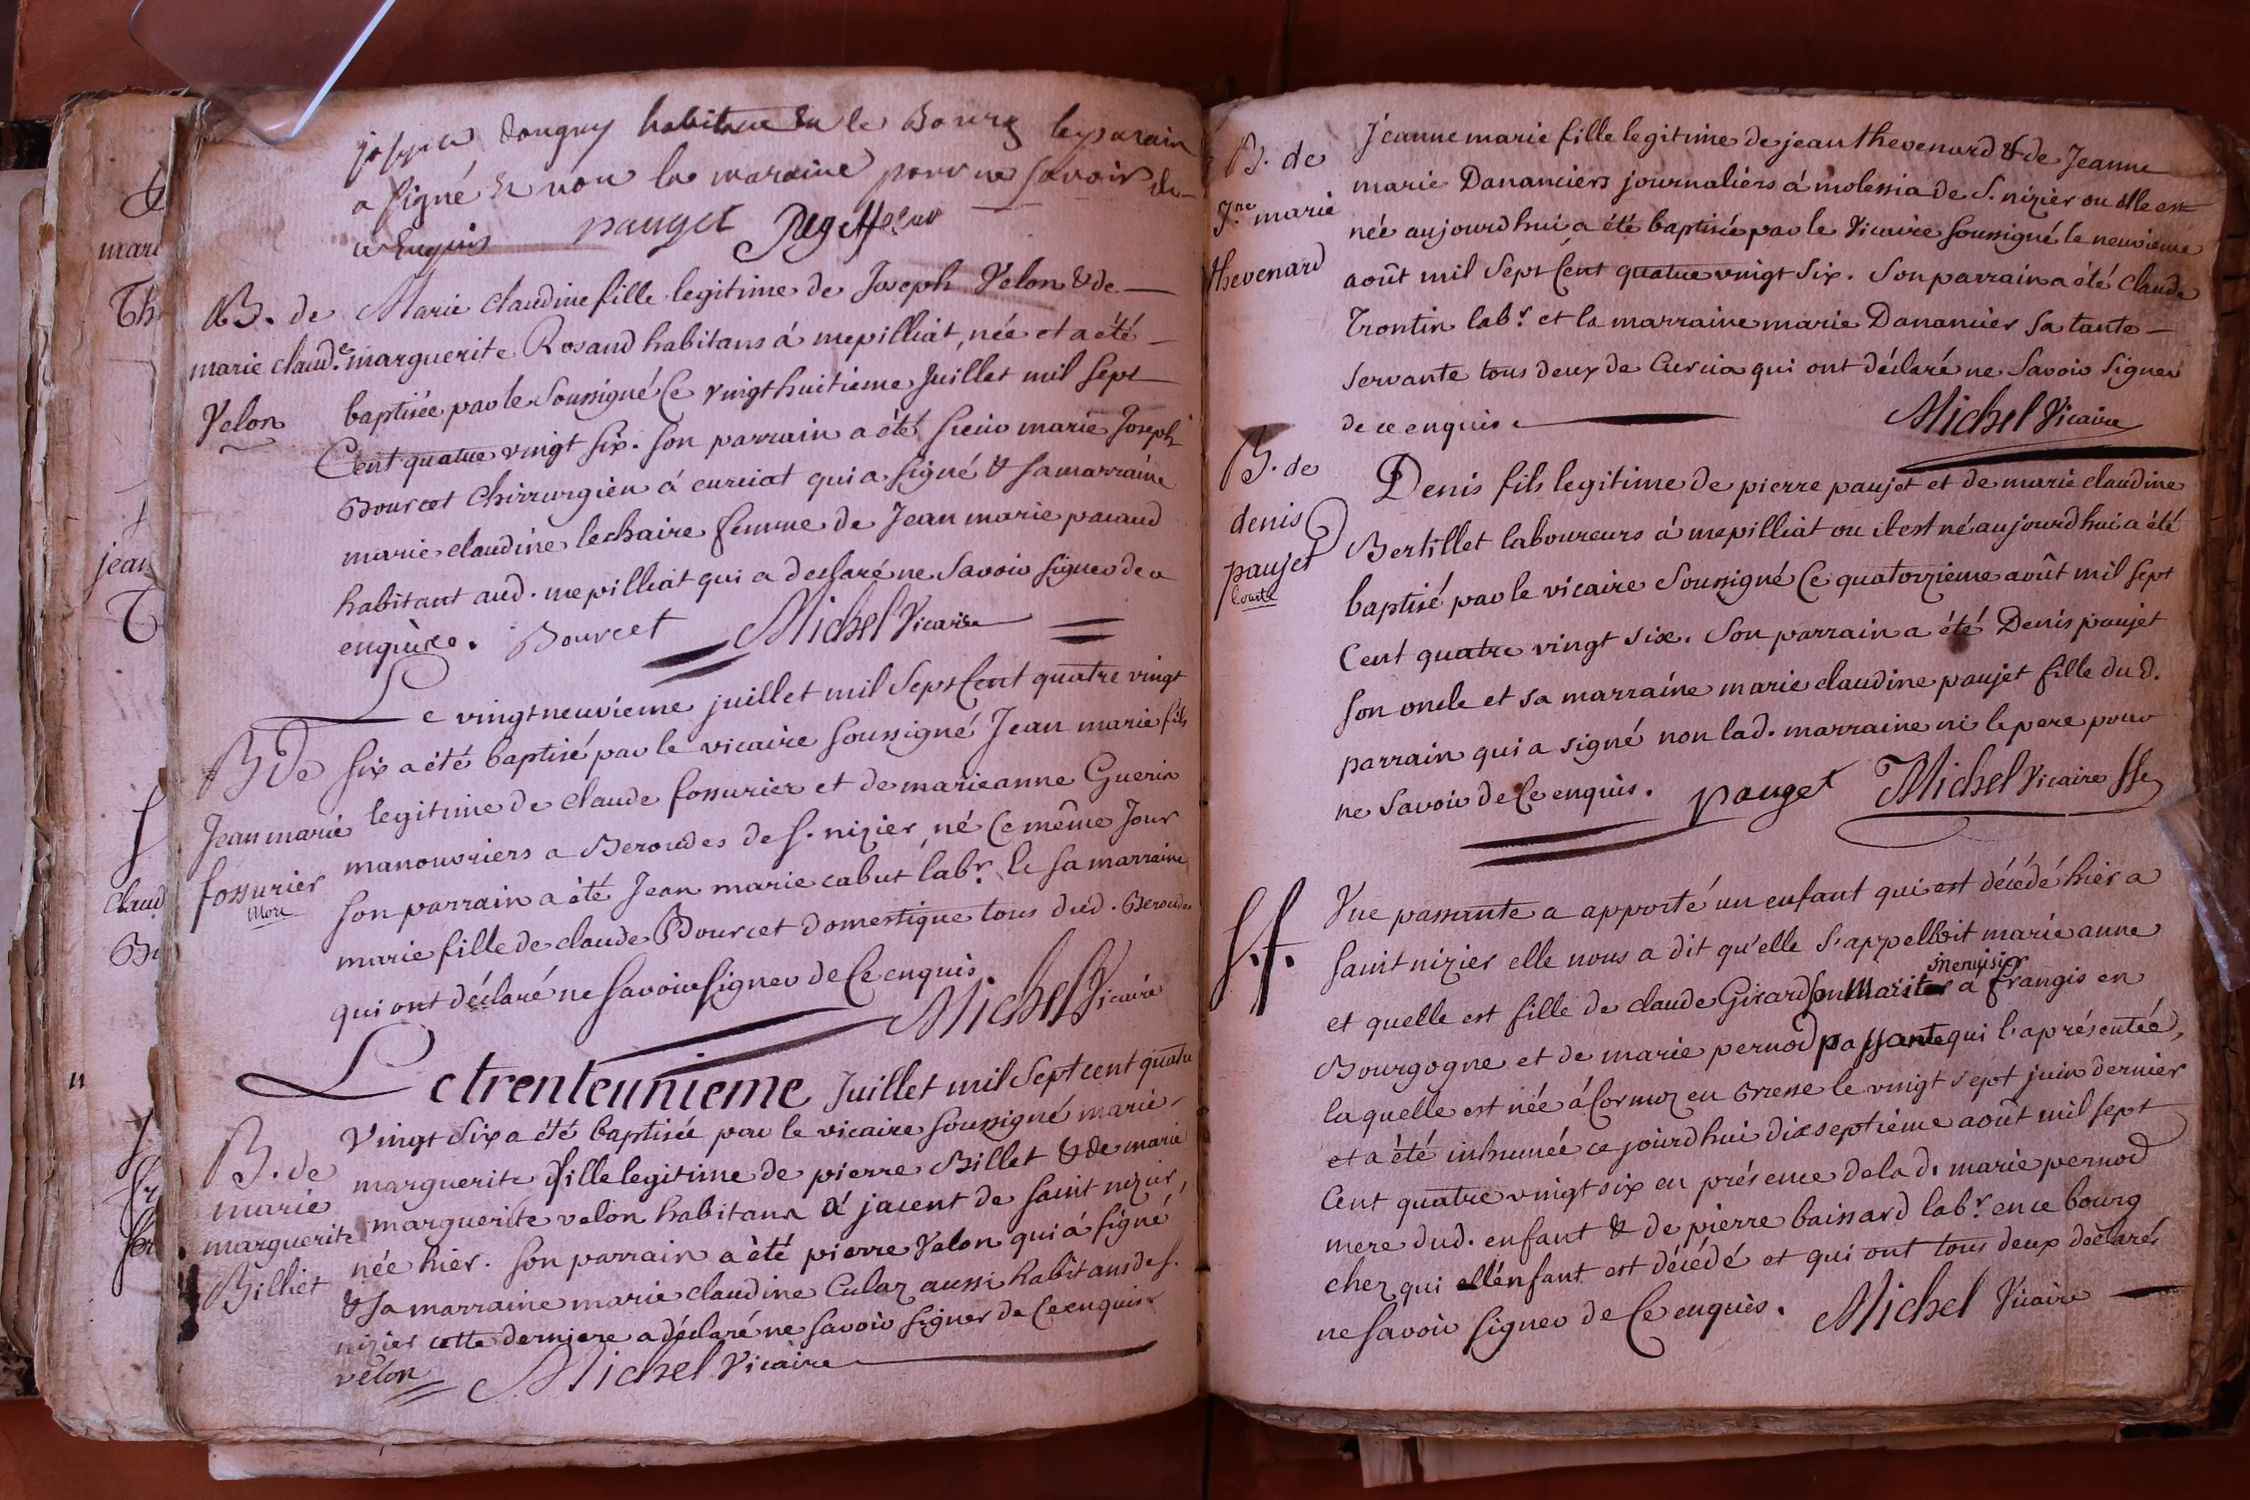 joseph danguy habitue en le Bourg le parain
a signé & non la maraine pour ne savoir de
ce Enquis pauget
B. de Marie claudine fille legitime de Joseph Velon & de
marie claud.e marguerite Rosand habitans á mepilliat, née et a été
Velon baptisée par le soussigné Ce vingt huitieme Juillet mil sept
Cent quatre vingt six. son parrain a été sieur marie Joseph
Bourcet Chirrurgien á curciat qui a signé & sa marraine
marie claudine lechaire femme de Jean marie pacaud
habitant aud. mepilliat qui a declaré ne savoir signer de ce
enquise. Bourcet Michel Vicaire
Le vingt neuvieme juillet mil sept Cent quatre vingt
B de six a été baptisé par le vicaire soussigné Jean marie fils
Jean marie legitime de claude fossurier et de marie anne Guerin
fossurier manouvriers a Beroudes de s. nizier né Ce même Jour
Mort son parrain a été Jean marie cabut lab.r & sa marraine
marie fille de claude Bourcet domestique tous dud. Beroudes
qui ont déclaré ne savoir signer de Ce enquis. Michel Vicaire
Le trente unieme Juillet mil sept cent quatre
vingt six a été baptisée par le vicaire soussigné marie
B. de marguerite fille legitime de pierre Billet & de marie
marie marguerite velon habitans á jacent de saint nizier,
marguerite née hier. son parrain a été pierre Velon qui á signé
Billiet & sa marraine marie claudine Culaz aussi habitans de s.
nizier cette derniere a déclaré ne savoir signer de Ce enquise
velon Michel Vicaire
B. de Jeanne marie fille legitime de jean thevenard & de Jeanne
J.ne marie marie Dananciers journaliérs á molessia de S. nizier ou elle est
thevenard née aujourd hui a été baptisée par le Vicaire soussigné le neuvieme
août mil sept Cent quatre vingt six. son parrain a été claude
Trontin lab.r et la marraine marie Danancier sa tante
servante tous deux de Curcia qui ont déclaré ne savoir signer
de ce enquis. Michel Vicaire
B. de Denis fils legitime de pierre paujet et de marie claudine
denis Bertillet laboureurs á mepilliat ou il est né aujourd hui a été
paujet baptisé par le vicaire soussigné Ce quatorzieme août mil sept
Cent quatre vingt six. son parrain a été Denis paujet
son oncle et sa marraine marie claudine paujet fille du d.
parrain qui a signé non lad. marraine ni le pere pour
ne savoir de Ce enquis. pauget Michel Vicaire
Une passante a apporté un enfant qui est décédé hier a
saint nizier elle nous a dit qu'elle s'appelloit marie anne
menuisier
et quelle est fille de claude Girard son Mari a frangis en
Bourgogne et de marie pernod passante qui l'a présentée,
laquelle est née á Cormoz en Bresse le vingt sept juin dernier
et a été inhumée ce jourd hui dix septieme août mil sept
Cent quatre vingt six en présence de la d. marie pernod
mere dud. enfant & de pierre baissard lab.r en ce bourg
chez qui l'enfant est décédé et qui ont tous deux déclarés
ne savoir signer de Ce enquis. Michel Vicaire